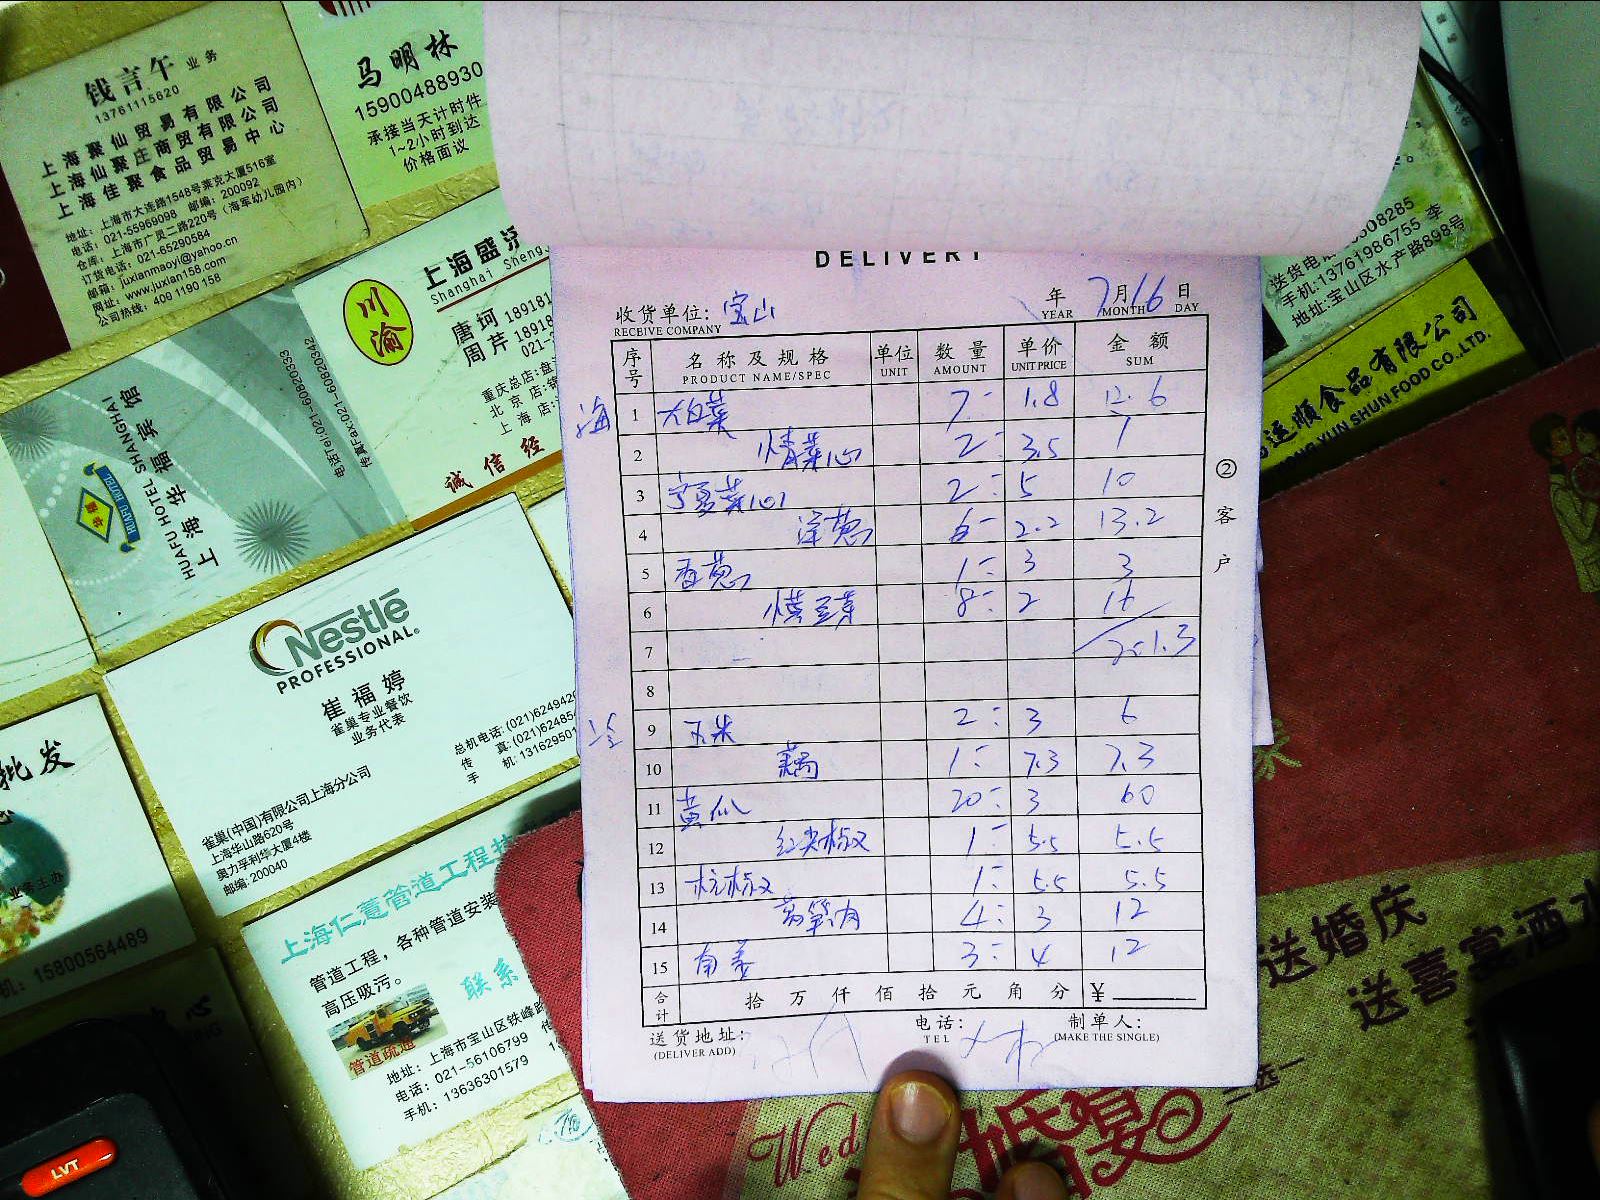 钱言午 业务
13761115620
上海聚仙贸易有限公司
上海仙聚庄商贸有限公司
上海佳聚食品贸易中心
地址：上海市大连路1548号莱克大厦516室
电话：021-55969098 邮编：200092
仓库：上海市广灵二路220号（海军幼儿园内）
订货电话：021-65290584
邮箱：juxianmaoyi@yahoo.cn
网址：www.juxian158.com
公司热线：409 1190 158
马明林
15900488930
承接当天计时件
1~2小时到达
价格面议
川渝
上海盛
Shanghai Sheng
唐珂 189181
周芹 18918
021-
重庆总店:盘
北京店:锦
上海店:
诚信经
HUAFU HOTEL
上海华福宾馆
HUAFU HOTEL SHANGHAI
电话Tel:021-60820333
传真Fax:021-60820342
Nestlé
PROFESSIONAL®
崔福婷
雀巢专业餐饮
业务代表
总机电话:(021)624942
传 真:(021)62485
手 机:13162950
雀巢(中国)有限公司上海分公司
上海华山路620号
奥力孚利华大厦4楼
邮编: 200040
批发
机：15800564489
上海仁薏管道工程
管道工程，各种管道安装
高压吸污。
联系
管道疏通
地址：上海市宝山区铁峰路
电话：021-56106799
手机：13636301579
LVT
DELIVERY
收货单位: 宝山 年 7月16日
RECEIVE COMPANY YEAR MONTH DAY
序号 名称及规格 单位 数量 单价 金额
PRODUCT NAME/SPEC UNIT AMOUNT UNIT PRICE SUM
海 1 大白菜 7- 1.8 12.6
2 情菜心 2: 3.5 7
3 宁夏菜心 2: 5 10
4 洋葱 6- 2.2 13.2
5 香葱 1: 3 3
6 黄豆芽 8: 2 16
7
8
9 玉米 2: 3 6
10 藕 1: 7.3 7.3
11 黄瓜 20: 3 60
12 红尖椒 1: 5.5 5.5
13 杭椒 1: 5.5 5.5
14 莴笋肉 4: 3 12
15 3: 4 12
合计 拾万仟佰拾元角分 ¥
送货地址: 电话: 制单人:
(DELIVER ADD) TEL (MAKE THE SINGLE)
② 客户
送货电
手机:13761986755 李
地址:宝山区水产路898号
运顺食品有限公司
YUN SHUN FOOD CO.,LTD.
送婚庆
送喜宴酒水
二选一
Wed
婚宴